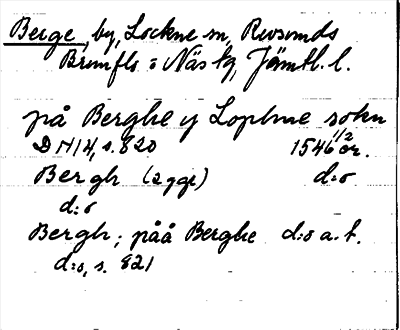 Berge, by, Lockne sn, Revsunds
Brunflo o Näs tg, Jämtl. l.
på Berghe y Lopkne sokn
DN 14, s. 820 1546 1/2 or.
Bergh (2 ggr) d:o
d:o
Bergh; påå Berghe d:o a. t.
d:o, s. 821